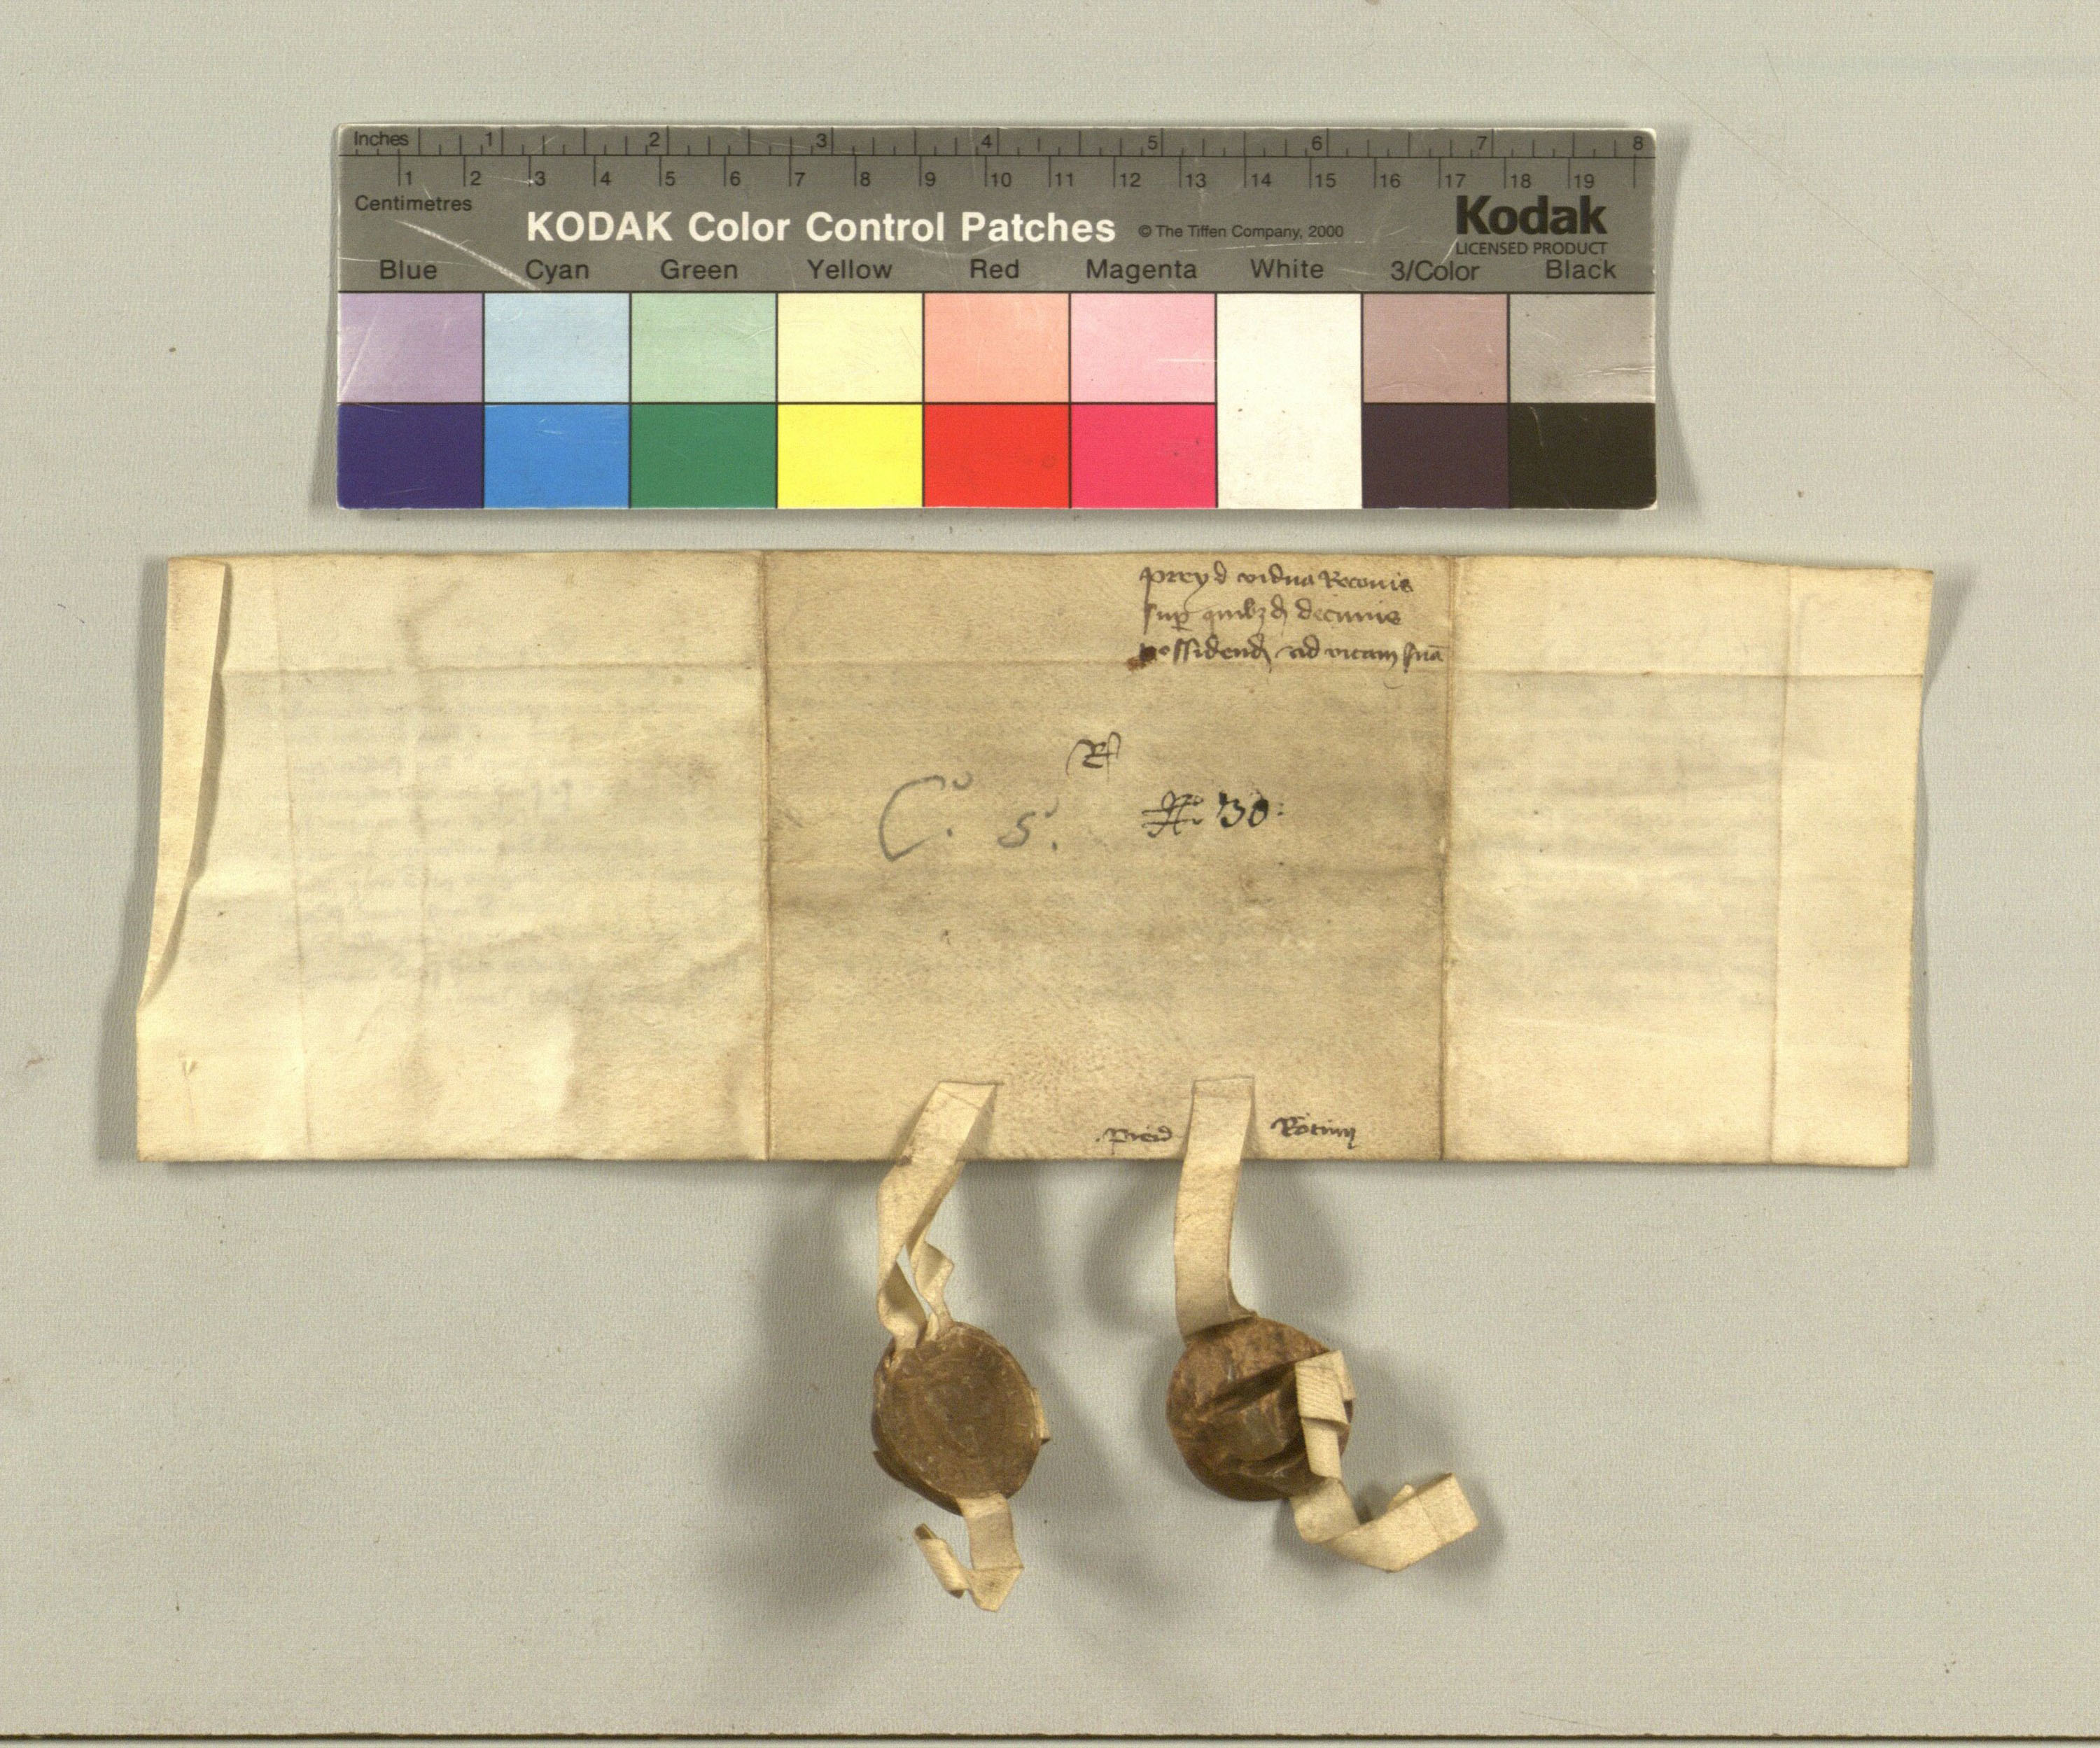 Inches 1 2 3 4 5 6 7 8
1 2 3 4 5 6 7 8 9 10 11 12 13 14 15 16 17 18 19
Centimetres
KODAK Color Control Patches © The Tiffen Company, 2000 Kodak
LICENSED PRODUCT
Blue Cyan Green Yellow Red Magenta White 3/Color Black
preyd vidua
sup quibzd decimis
possidend ad vitam sua
R
C. 5. 30: